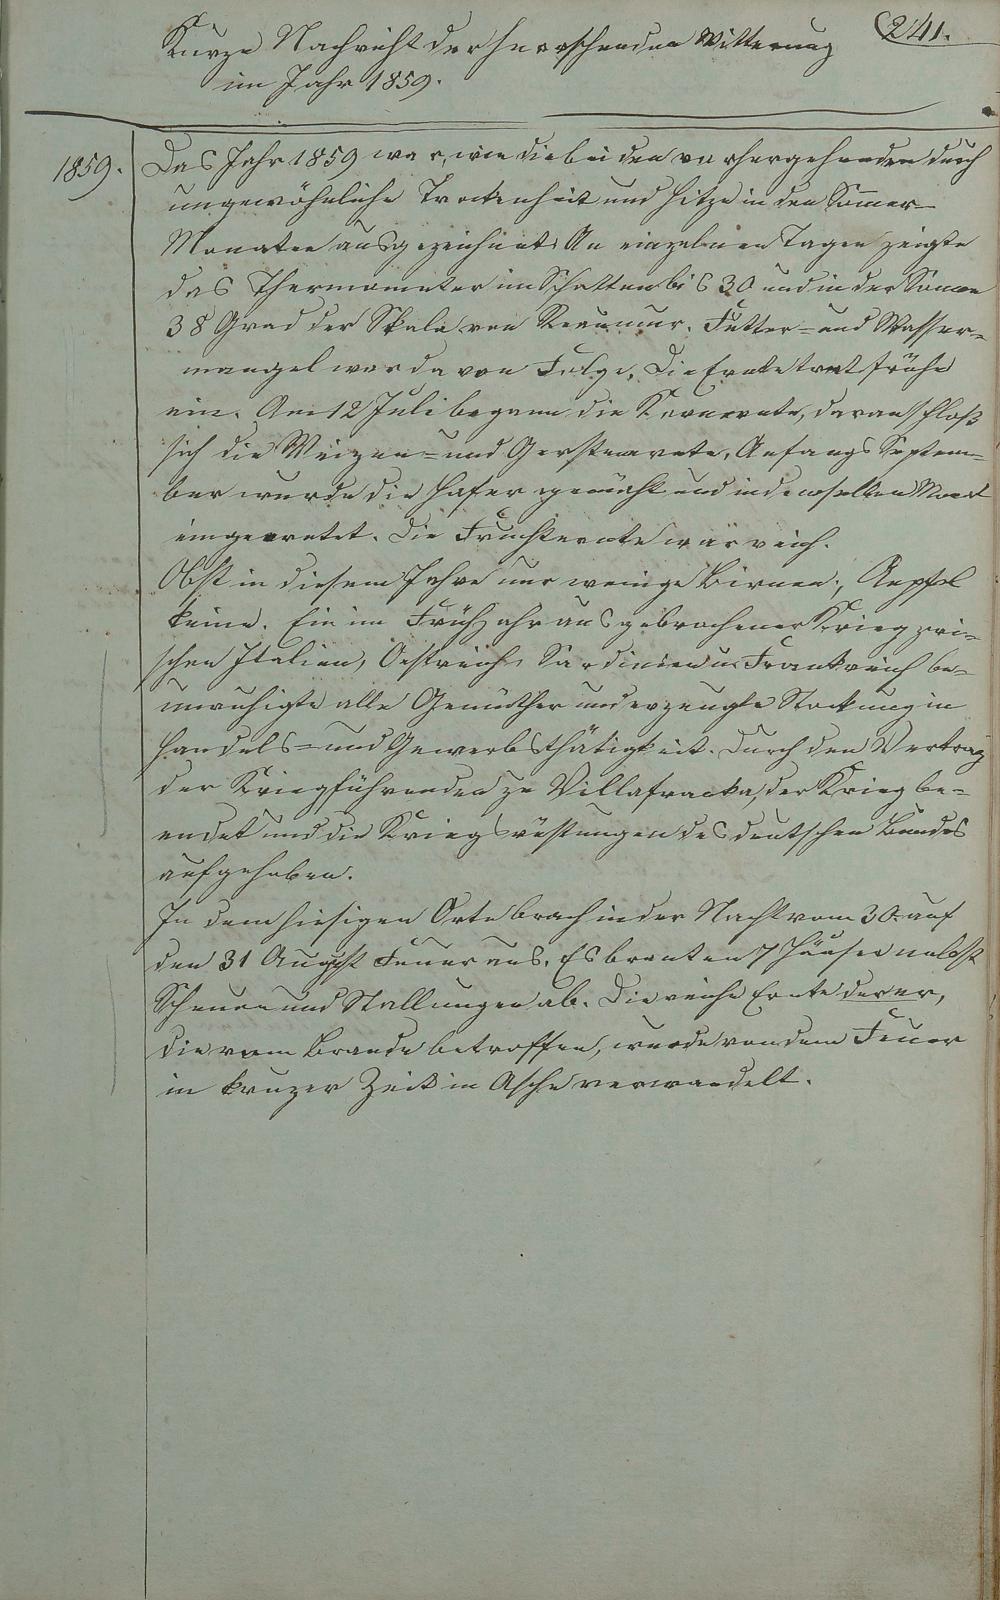 241.
Kurze Nachricht der herrschenden Witterung
im Jahr 1859.
1859.
Das Jahr 1859 war, wie die beiden vorhergehenden durch
ungewöhnliche Trockenheit und Hitze in den Som̄er-
Monaten ausgezeichnet. An einzelnen Tagen zeigte
das Thermometer im Schatten bis 30 und in der Sonne
38 Grad der Skala von Reaumur. Futter- und Wasser-
mangel war davon Folge. Die Ernte trat frühe
ein. Am 12 Juli begann die Kornernte, daran schloß
sich die Weizen- und Gerstenernte, Anfangs Septem-
ber wurde die Hafer gemäht und in demselben Monat
eingeerntet. Die Fruchternte war reich.
Obst in diesem Jahre nur wenige Birnen, Aepfel
keine. Ein im Frühjahr ausgebrochener Krieg zwi-
schen Italien, Oestreich, Sardinien u. Frankreich be-
unruhigte alle Gemüther und erzeugte Stockung in
Handels- und Gewerbsthätigkeit. Durch den Vertrag
der Kriegführenden zu Villafranka, der Krieg be-
endet und die Kriegsrüstungen des deutschen Bundes
aufgehoben.
In dem hiesigen Orte brach in der Nacht vom 30. auf
den 31 August Feuer aus. Es branten 7 Häuser nebst
Scheuern und Stallungen ab. Die reiche Ernte derer,
die vom Brande betroffen, wurde von dem Feuer
in kruzer Zeit in Asche verwandelt.